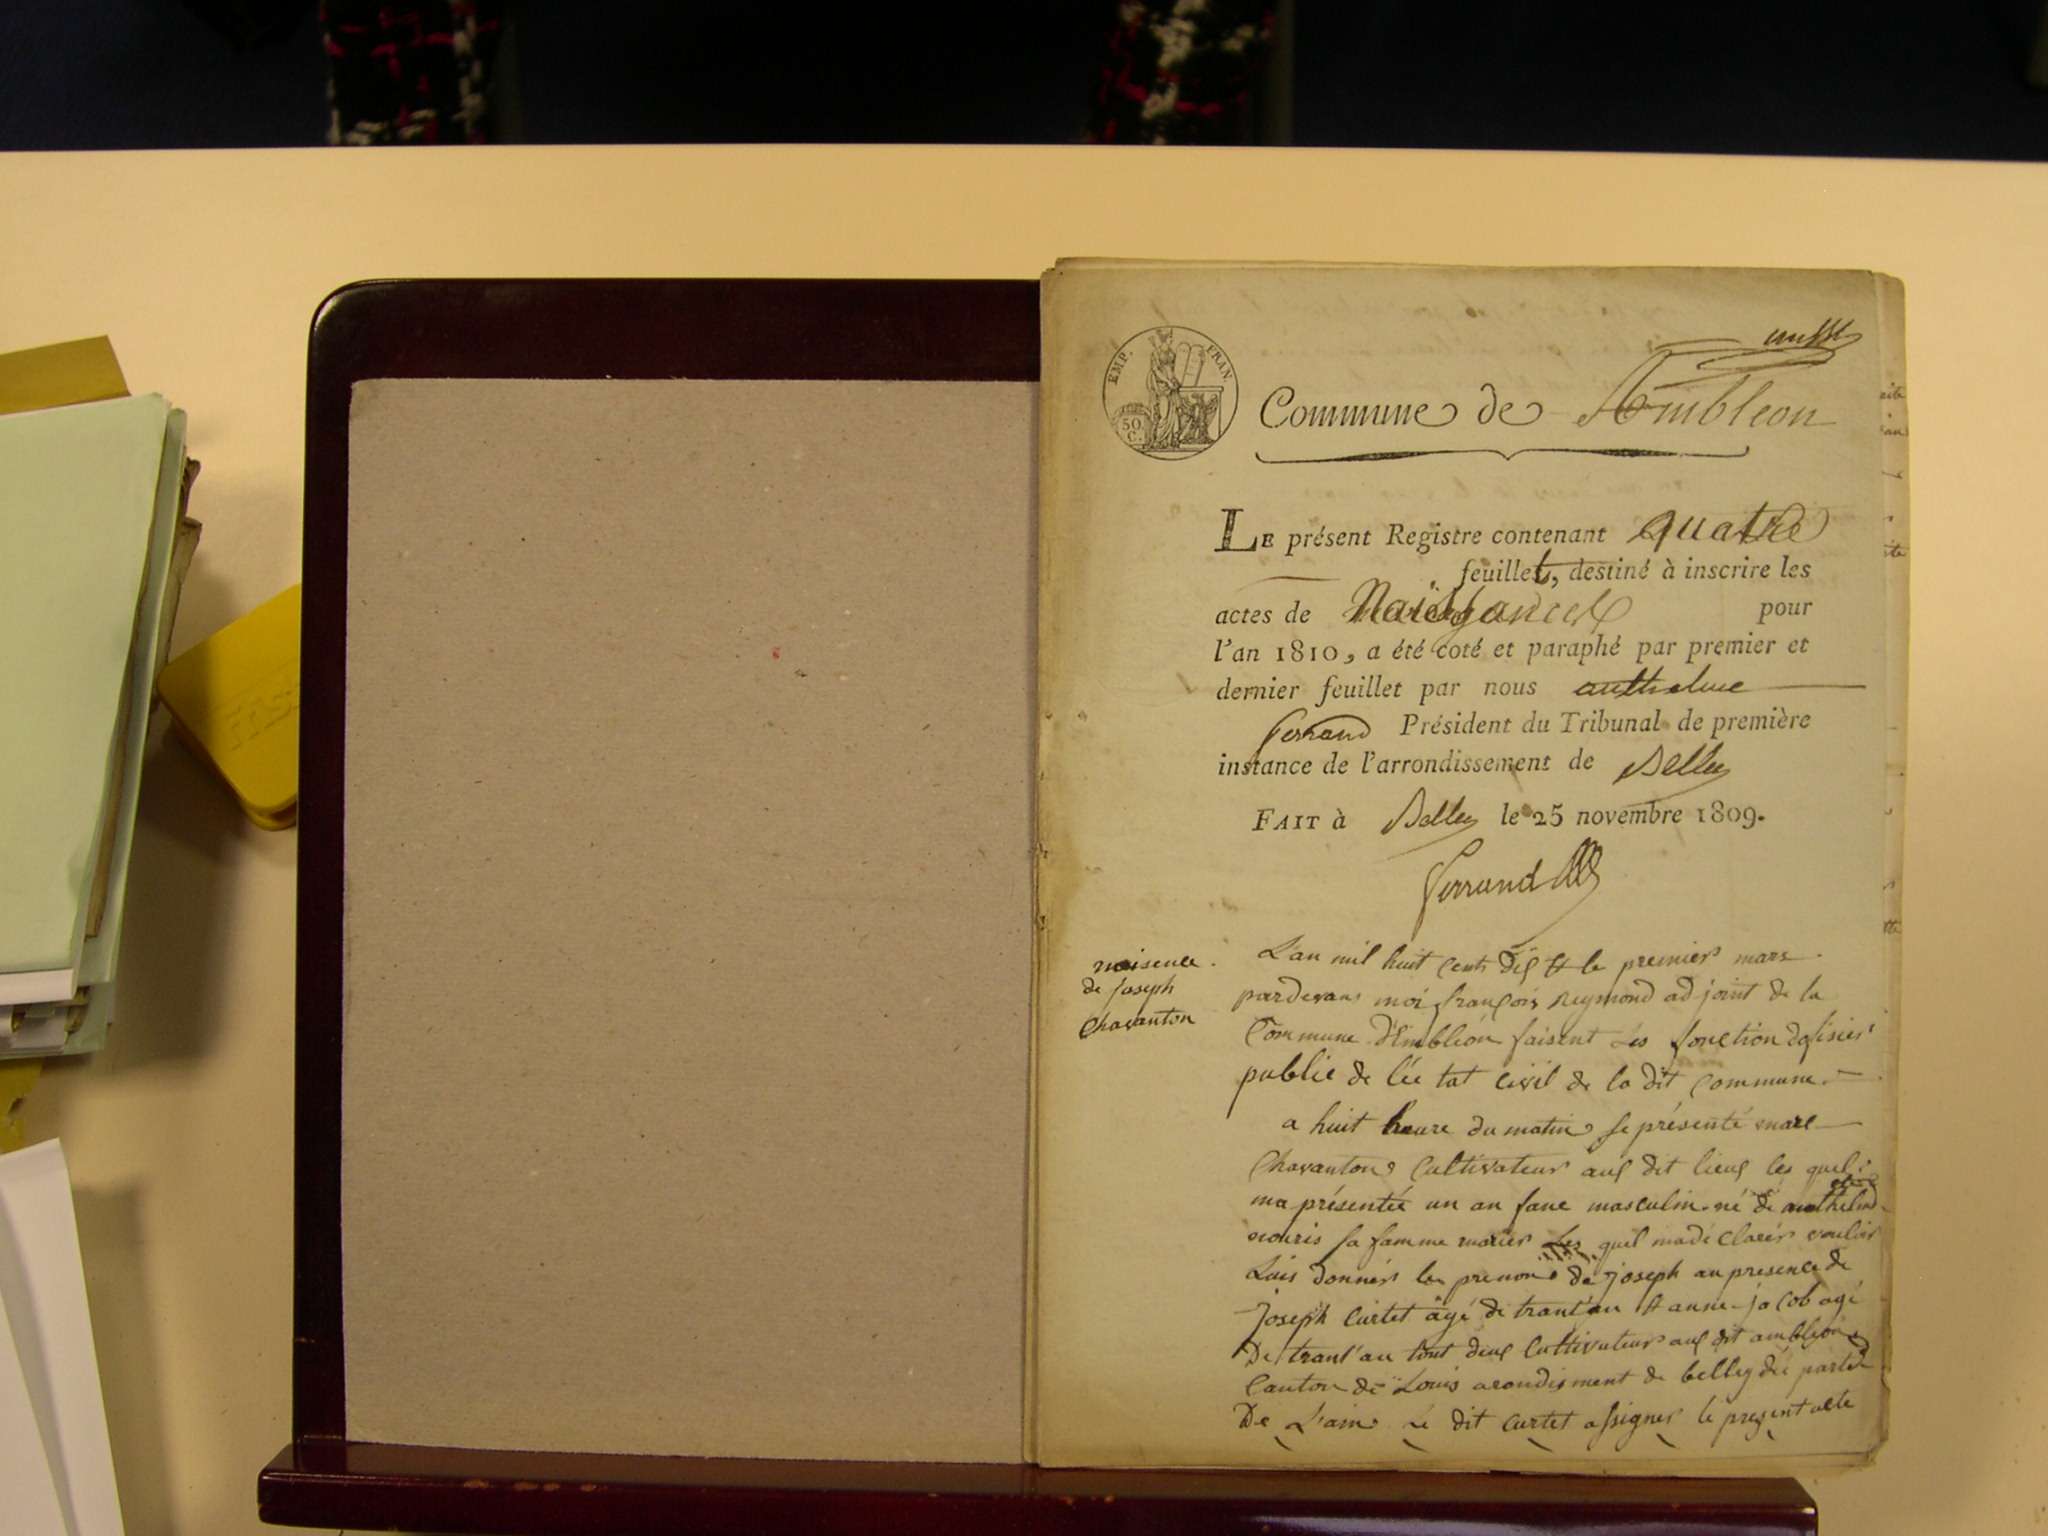 EMP. FRAN.
50 C.
Commune de Ambleon
LE présent Registre contenant quatre
feuillet, destiné à inscrire les
actes de Naissances pour
l'an 1810, a été coté et paraphé par premier et
dernier feuillet par nous anthelme
ferrand Président du Tribunal de première
instance de l'arrondissement de Belley
FAIT à Belley le 25 novembre 1809.
ferrand
naisence
de joseph
Chavanton
L'an mil huit cents dix & le premier mars
pardevant moi françois reymond adjoint de la
Commune d'Embléon faisent les fonction dofisier
public de lée tat civil de la dit commune.
a huit heure du matin se présenté marc
Chavanton cultivateur aux dit lieux les quel
ma présentée un an fane masculin né de
nouris sa famme marier les quel madéclarér vouloir
Luis donnér le prenon de joseph an présence de
joseph Curtet âgé de trant'an & anne jacob agé
De trant'an tout deux Cultivateur aux dit ambleon
Canton de Louis arondisment de belley dé parte
De L'ain Le dit curtet assigner le present acte